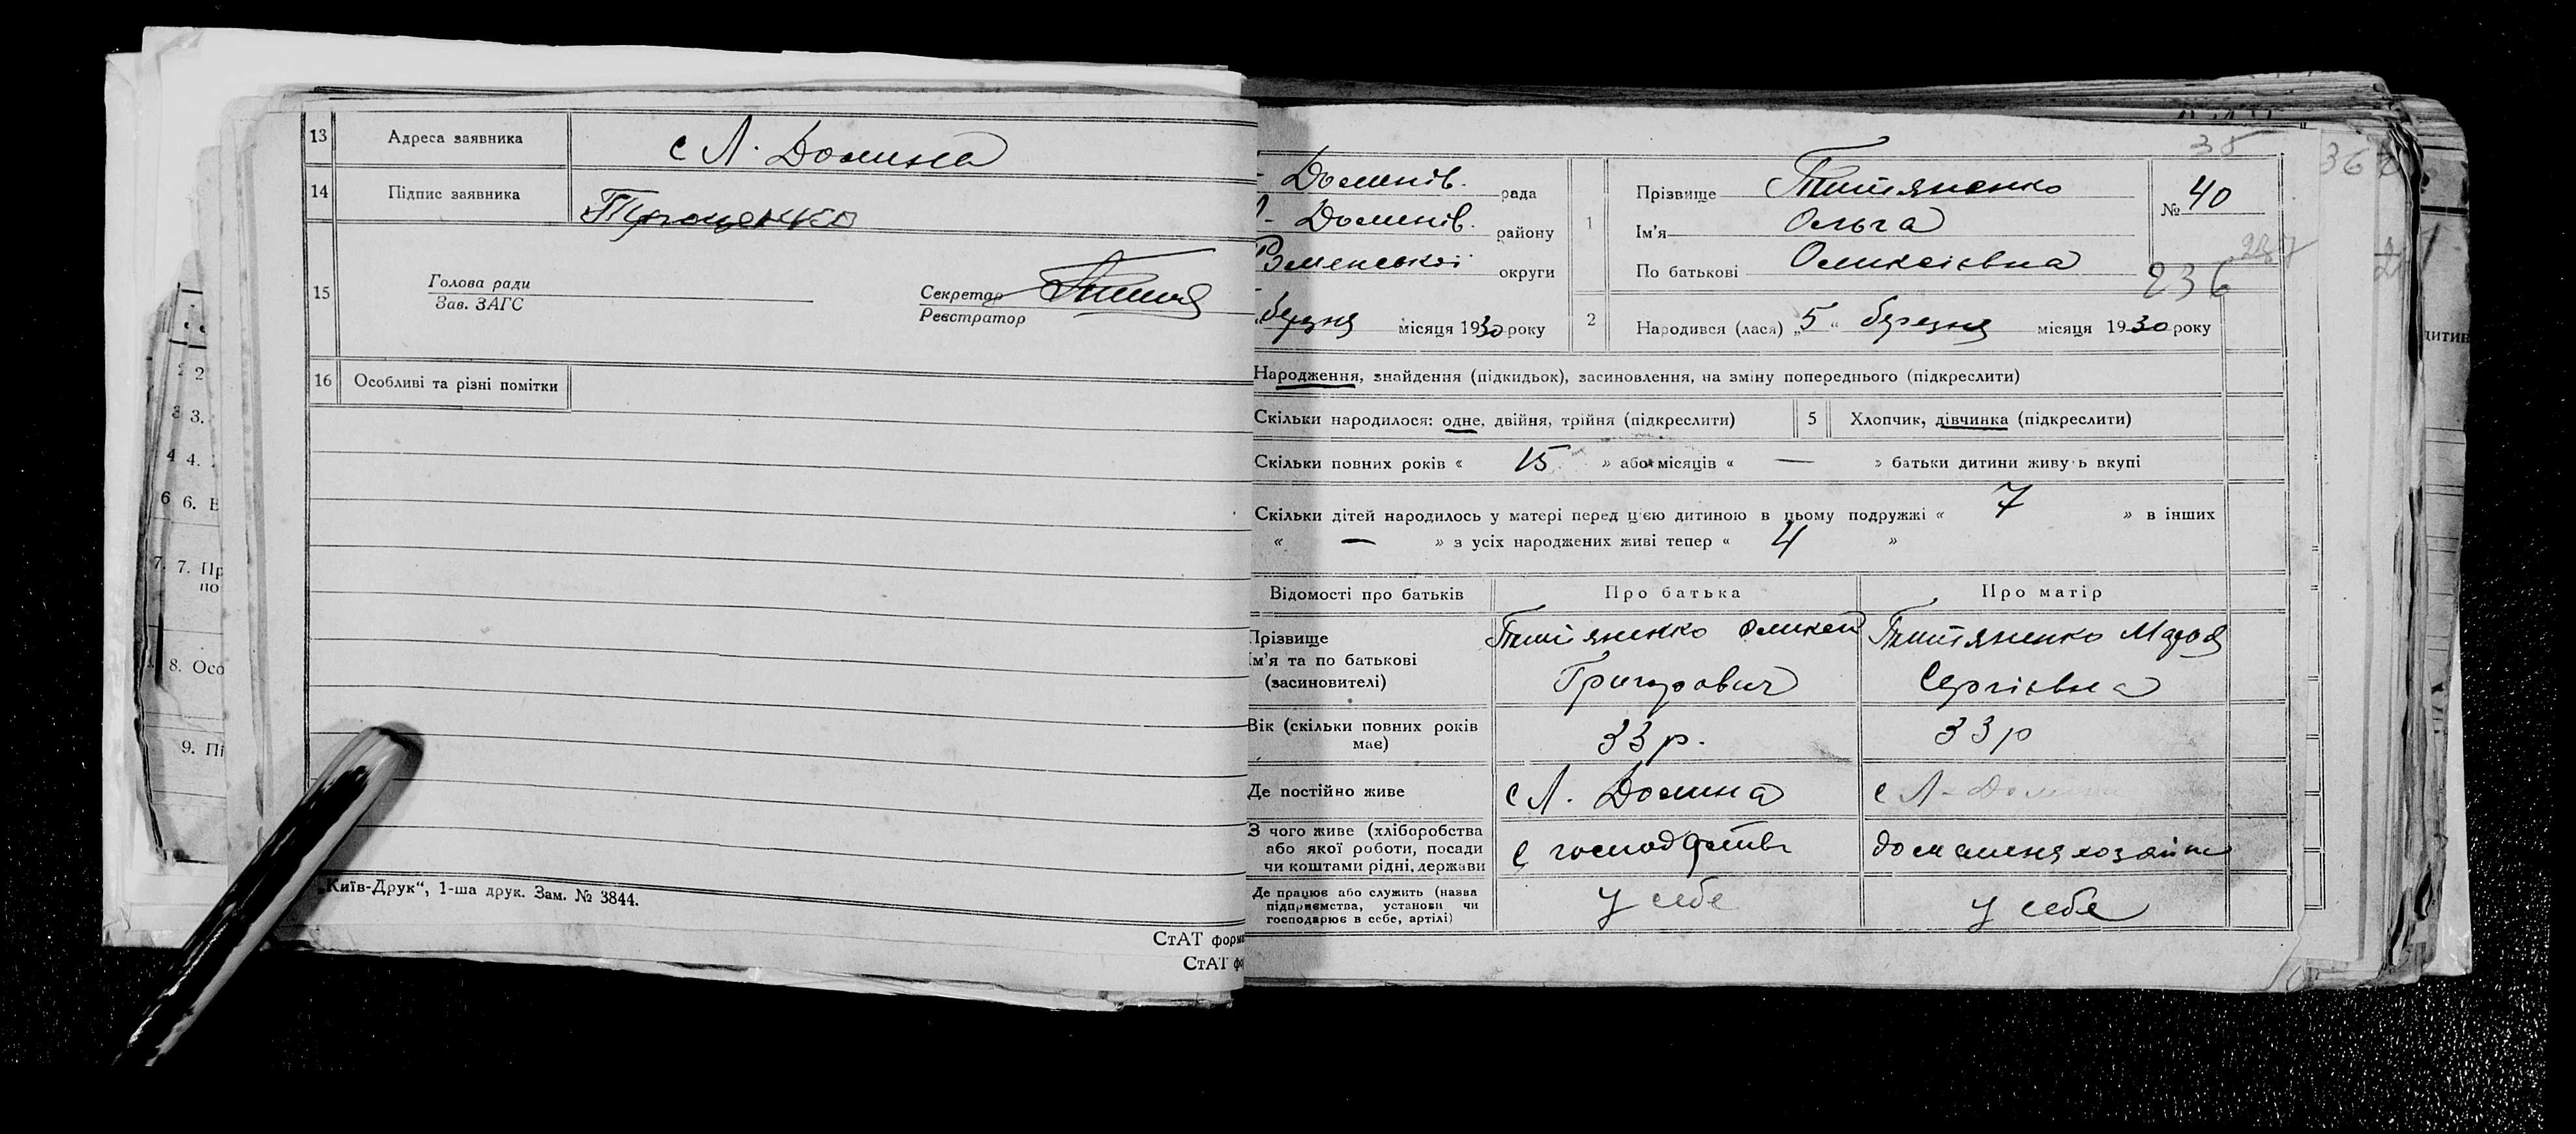 13 Адреса заявника с Л. Долина
14 Підпис заявника Троценко
15 Голова ради
Зав. ЗАГС
Секретар
Реєстратор
16 Особливі та різні помітки
2
3 3.
4 4.
6 6. В
7. 7. Пр
по
8. Осо
9. Пі
„Київ-Друк“, 1-ша друк. Зам. № 3844.
СтАТ форм
СтАТ фо
38
36
Долинів. рада
Долинів. району
Роменської округи
березня місяця 1930 року
1 Прізвище Титяненко
Ім'я Ольга
По батькові Олексієвна
№ 40
237
236
2 Народився (лася) „5“ березня місяця 1930 року
Народження, знайдення (підкидьок), засиновлення, на зміну попереднього (підкреслити)
Скільки народилося: одне, двійня, трійня (підкреслити) 5 Хлопчик, дівчинка (підкреслити)
Скільки повних років « 15 » або місяців « — » батьки дитини живуть вкупі
Скільки дітей народилось у матері перед цією дитиною в цьому подружжі « 7 » в інших
« — » з усіх народжених живі тепер « 4 »
Відомості про батьків Про батька Про матір
Прізвище Титяненко Олексій Титяненко Марія
Ім'я та по батькові
(засиновителі) Григорович Сергієвна
Вік (скільки повних років
має) 33 р. 33 р
Де постійно живе с Л. Долина с Л. Долина
З чого живе (хліборобства
або якої роботи, посади
чи коштами рідні, держави с господарства домашня хозяйка
Де працює або служить (назва
підприємства, установи чи
господарює в себе, артілі) у себе у себе
дитин